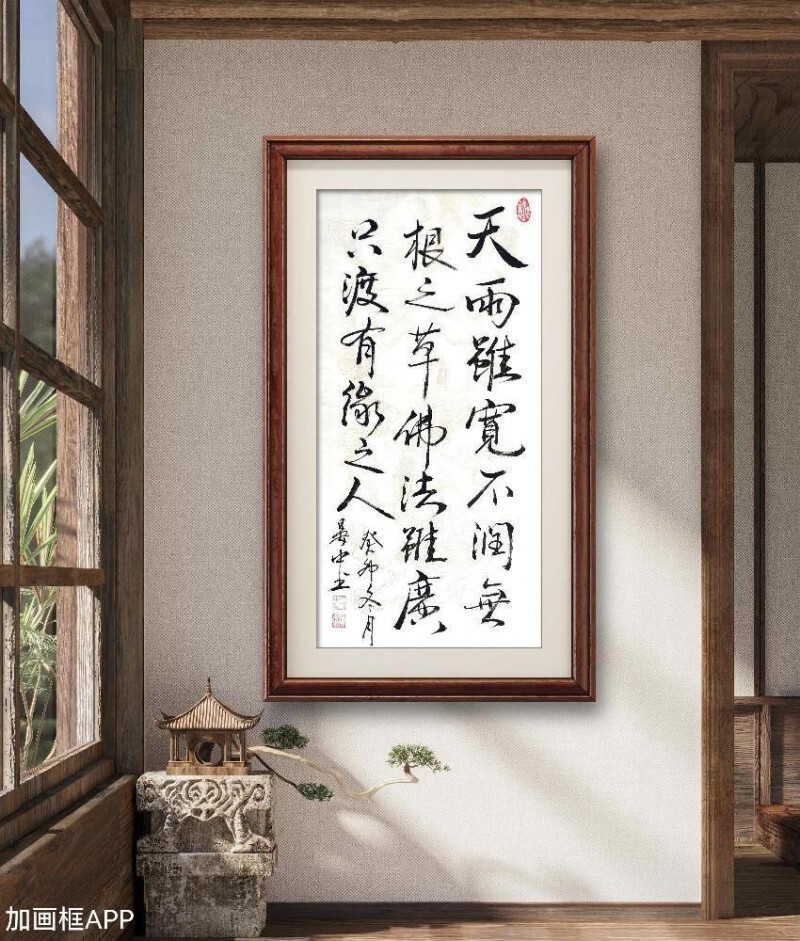 天雨雖寬不潤無
根之草佛法雖廣
只渡有緣之人
癸卯冬月
加画框APP